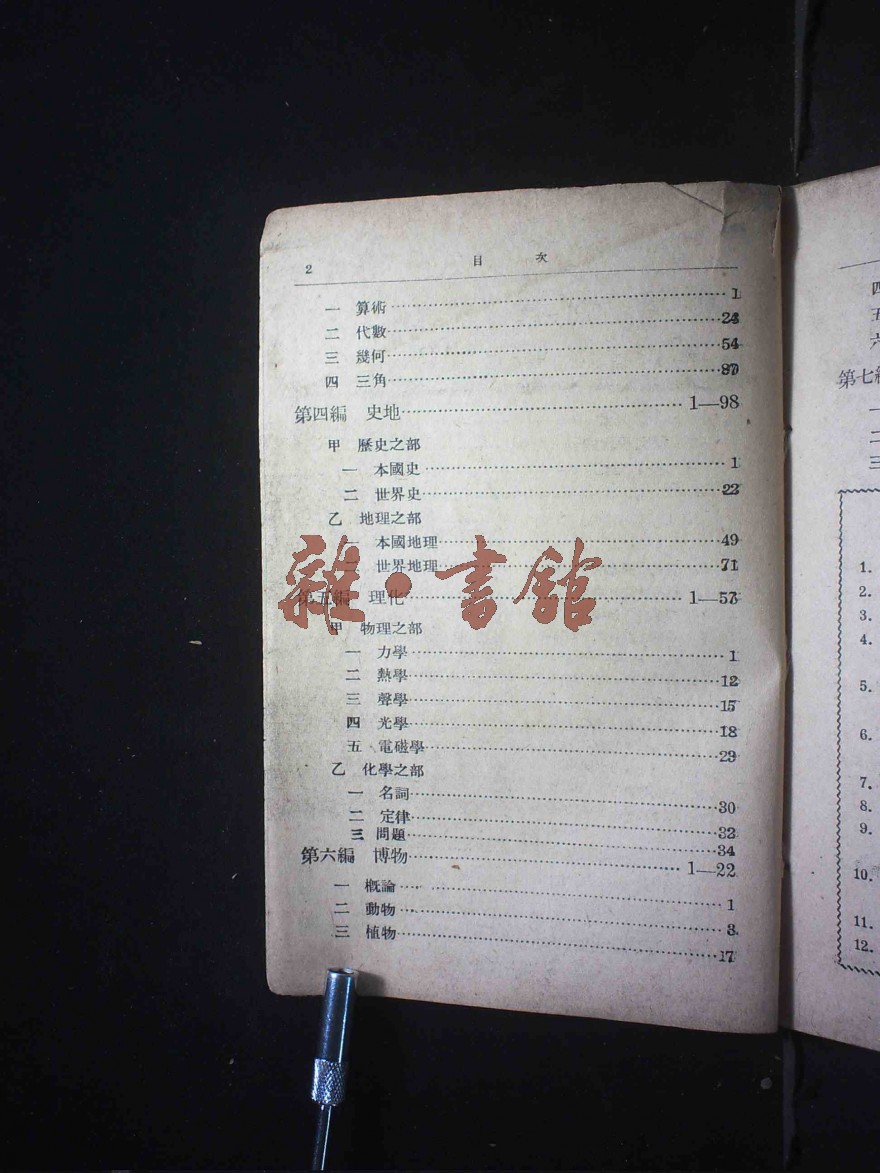 2 目次
一 算術 1
二 代數
三 幾何 54
四 三角
第四編 史地 1—98
甲 歷史之部
一 本國史 1
二 世界史
乙 地理之部
一 本國地理 49
二 世界地理 71
第五編 理化 1—57
甲 物理之部
一 力學 1
二 熱學 12
三 聲學 15
四 光學 18
五 電磁學
乙 化學之部
一 名詞 30
二 定律
三 問題 34
第六編 博物 1—22
一 概論 1
二 動物 8
三 植物 17
雜·書館
四
五
六
第七編
一
二
三
1.
2.
3.
4.
5.
6.
7.
8.
9.
10.
11.
12.